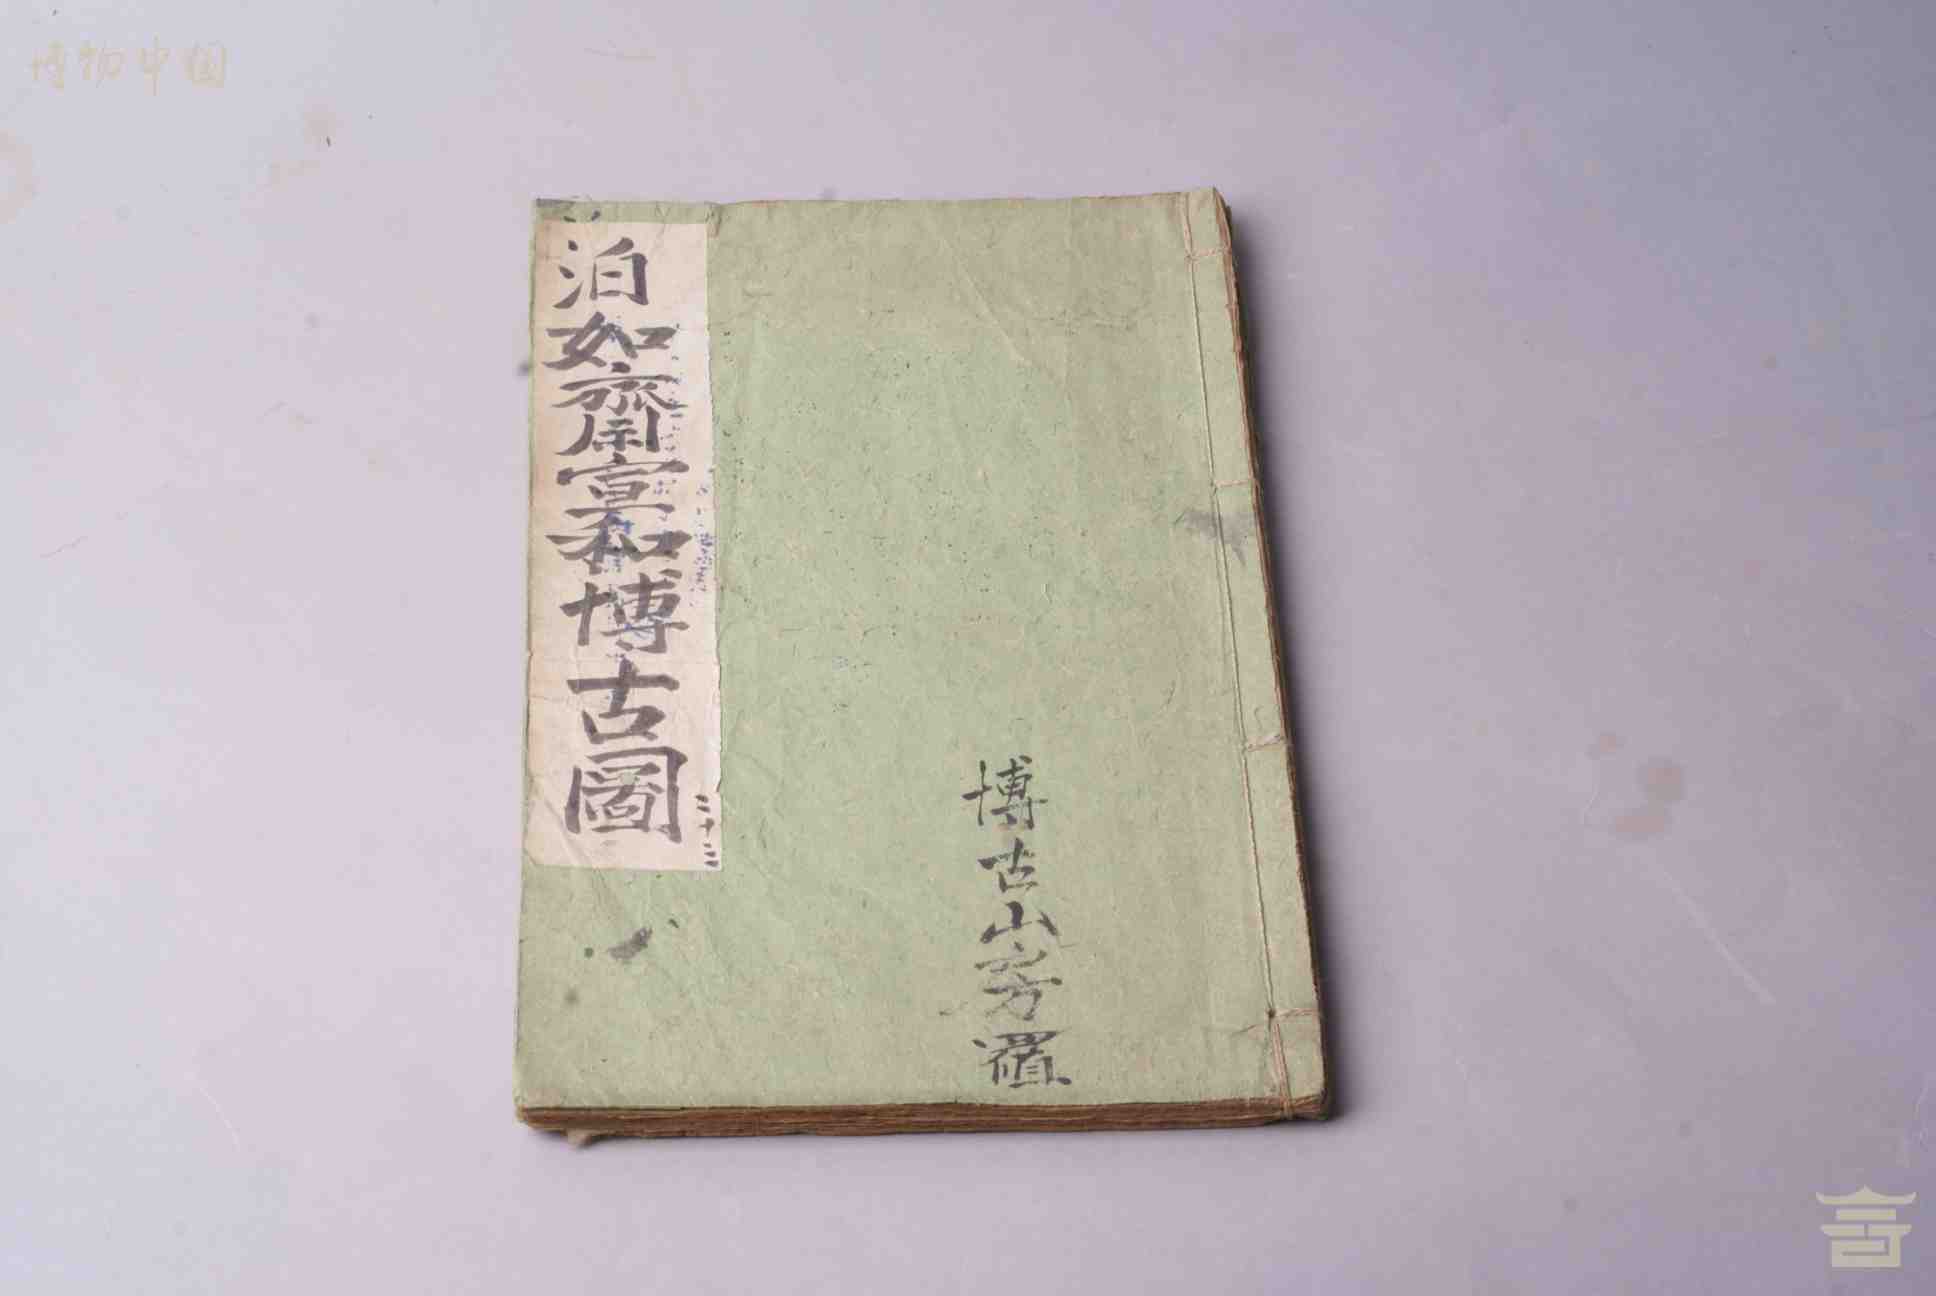 博物中国
泊如齋宣和博古圖
二十二
博古山房置